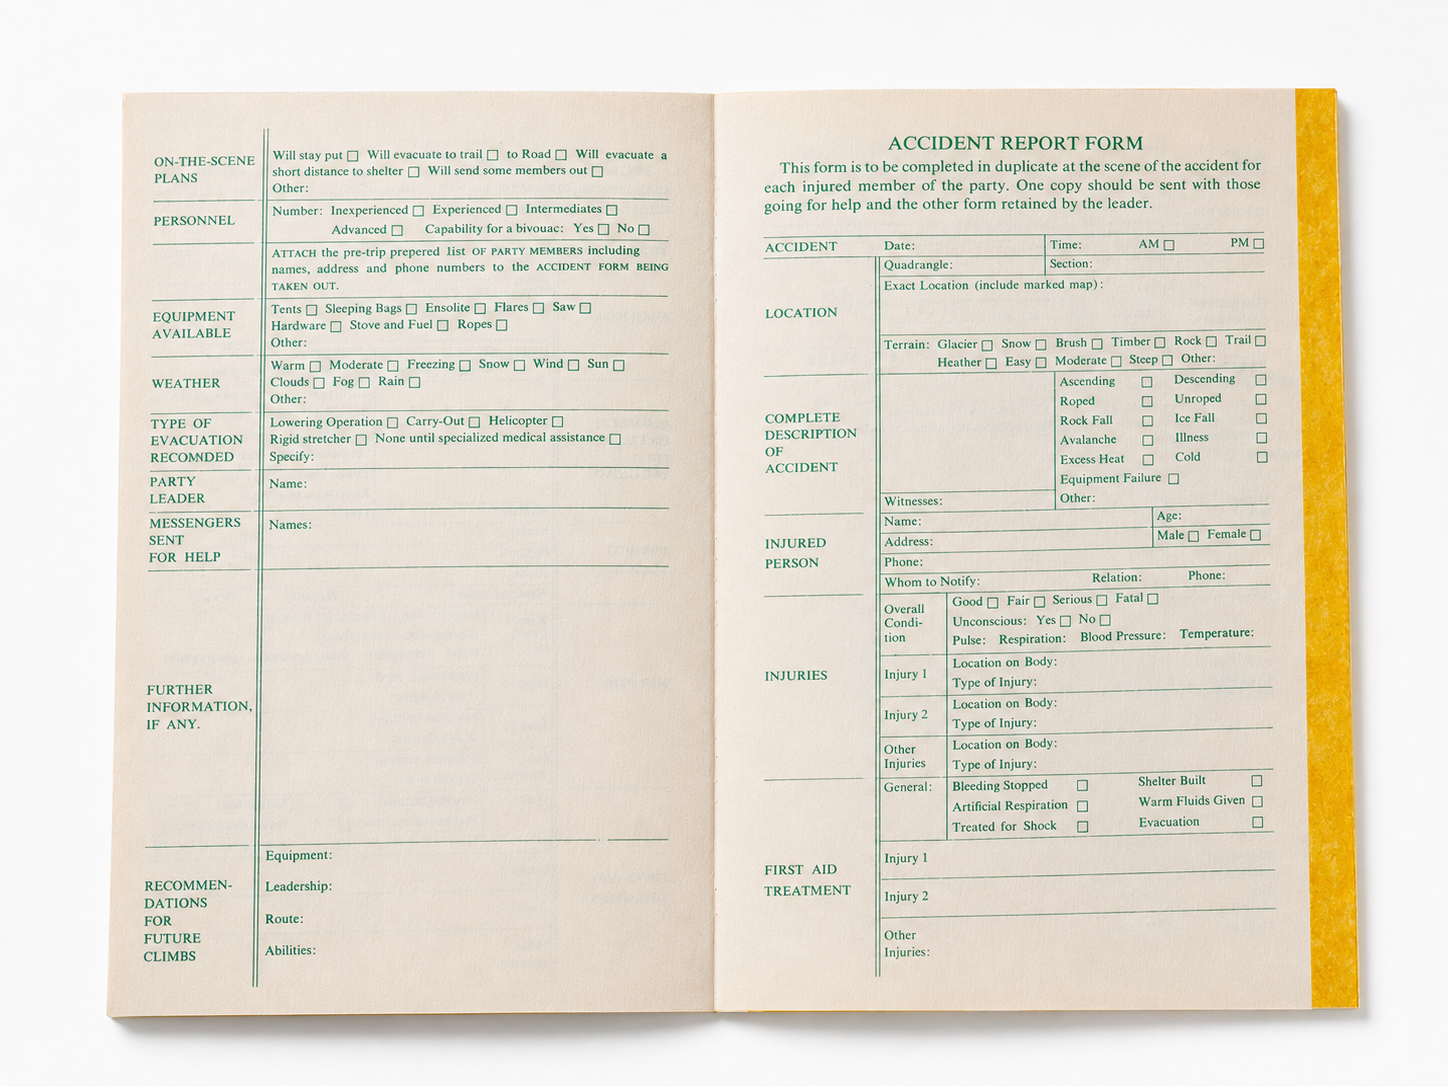 ON-THE-SCENE
PLANS
Will stay put ☐ Will evacuate to trail ☐ to Road ☐ Will evacuate a
short distance to shelter ☐ Will send some members out ☐
Other:
PERSONNEL
Number: Inexperienced ☐ Experienced ☐ Intermediates ☐
Advanced ☐ Capability for a bivouac: Yes ☐ No ☐
ATTACH the pre-trip prepered list OF PARTY MEMBERS including
names, address and phone numbers to the ACCIDENT FORM BEING
TAKEN OUT.
EQUIPMENT
AVAILABLE
Tents ☐ Sleeping Bags ☐ Ensolite ☐ Flares ☐ Saw ☐
Hardware ☐ Stove and Fuel ☐ Ropes ☐
Other:
WEATHER
Warm ☐ Moderate ☐ Freezing ☐ Snow ☐ Wind ☐ Sun ☐
Clouds ☐ Fog ☐ Rain ☐
Other:
TYPE OF
EVACUATION
RECOMNDED
Lowering Operation ☐ Carry-Out ☐ Helicopter ☐
Rigid stretcher ☐ None until specialized medical assistance ☐
Specify:
PARTY
LEADER
Name:
MESSENGERS
SENT
FOR HELP
Names:
FURTHER
INFORMATION,
IF ANY.
RECOMMEN-
DATIONS
FOR
FUTURE
CLIMBS
Equipment:
Leadership:
Route:
Abilities:
ACCIDENT REPORT FORM
This form is to be completed in duplicate at the scene of the accident for
each injured member of the party. One copy should be sent with those
going for help and the other form retained by the leader.
ACCIDENT
Date:
Time: AM ☐ PM ☐
LOCATION
Quadrangle:
Section:
Exact Location (include marked map):
Terrain: Glacier ☐ Snow ☐ Brush ☐ Timber ☐ Rock ☐ Trail ☐
Heather ☐ Easy ☐ Moderate ☐ Steep ☐ Other:
COMPLETE
DESCRIPTION
OF
ACCIDENT
Ascending ☐ Descending ☐
Roped ☐ Unroped ☐
Rock Fall ☐ Ice Fall ☐
Avalanche ☐ Illness ☐
Excess Heat ☐ Cold ☐
Equipment Failure ☐
Witnesses:
Other:
INJURED
PERSON
Name:
Age:
Address:
Male ☐ Female ☐
Phone:
Whom to Notify: Relation: Phone:
INJURIES
Overall
Condi-
tion
Good ☐ Fair ☐ Serious ☐ Fatal ☐
Unconscious: Yes ☐ No ☐
Pulse: Respiration: Blood Pressure: Temperature:
Injury 1
Location on Body:
Type of Injury:
Injury 2
Location on Body:
Type of Injury:
Other
Injuries
Location on Body:
Type of Injury:
FIRST AID
TREATMENT
General:
Bleeding Stopped ☐ Shelter Built ☐
Artificial Respiration ☐ Warm Fluids Given ☐
Treated for Shock ☐ Evacuation ☐
Injury 1
Injury 2
Other
Injuries: